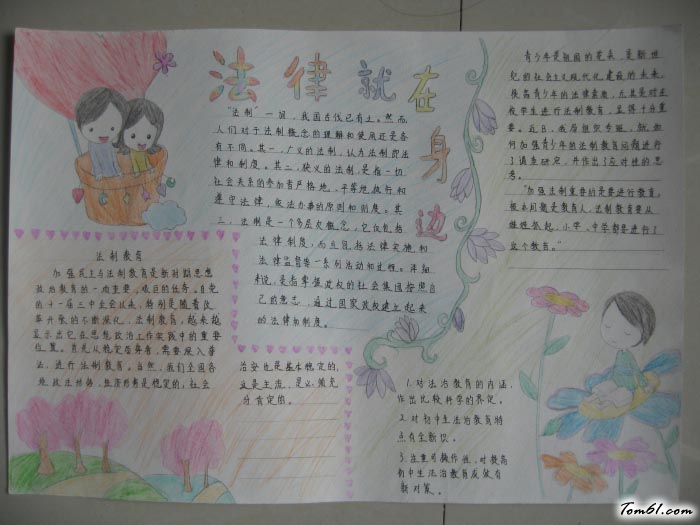 法律就在身边
"法制"一词，我国古代已有之。然而
人们对于法制概念的理解和使用还是各
有不同。其一，广义的法制，认为法制即法
律和制度。其二，狭义的法制，是指一切
社会关系的参加者严格地、平等地执行和
遵守法律，依法办事的原则和制度。其
三，法制是一个多层次概念，它仅包括
法律制度，而且包括法律实施和
法律监督等一系列活动和过程。详细
来说，是指掌握政权的社会集团按照自
己的意志，通过国家政权建立起来
的法律和制度。
法制教育
加强民主与法制教育是新时期思想
政治教育的一项重要、艰巨的任务。自党
的十一届三中全会以来，特别是随着改
革开放的不断深化，法制教育，越来越
显示出它在思想政治工作实践中的重要
位置。首先从稳定性身看，需要深入普
法，进行法制教育。当然，我们全国各
地政法战线，生活形势是稳定的，社会
治安也是基本稳定的，
这是主流，是必须充
分肯定的。
青少年是祖国的花朵，是新世
纪的社会主义现代化建设的未来。
提高青少年的法律素质，尤其是对在
校学生进行法制教育，显得十分重
要。近日，我局组织专班，就如
何加强青少年的法制教育问题进行
了调查研究，并作出了应对性的思
考。
"加强法制重要的是要进行教育，
根本问题是教育人，法制教育要从
娃娃抓起，小学、中学都要进行
这个教育。"
1. 对法治教育的内涵
作出比较科学的界定。
2. 对初中生法治教育特
点有全新认识。
3. 注重可操作性，对提高
初中生法治教育成效有
新对策。
Tom61.com